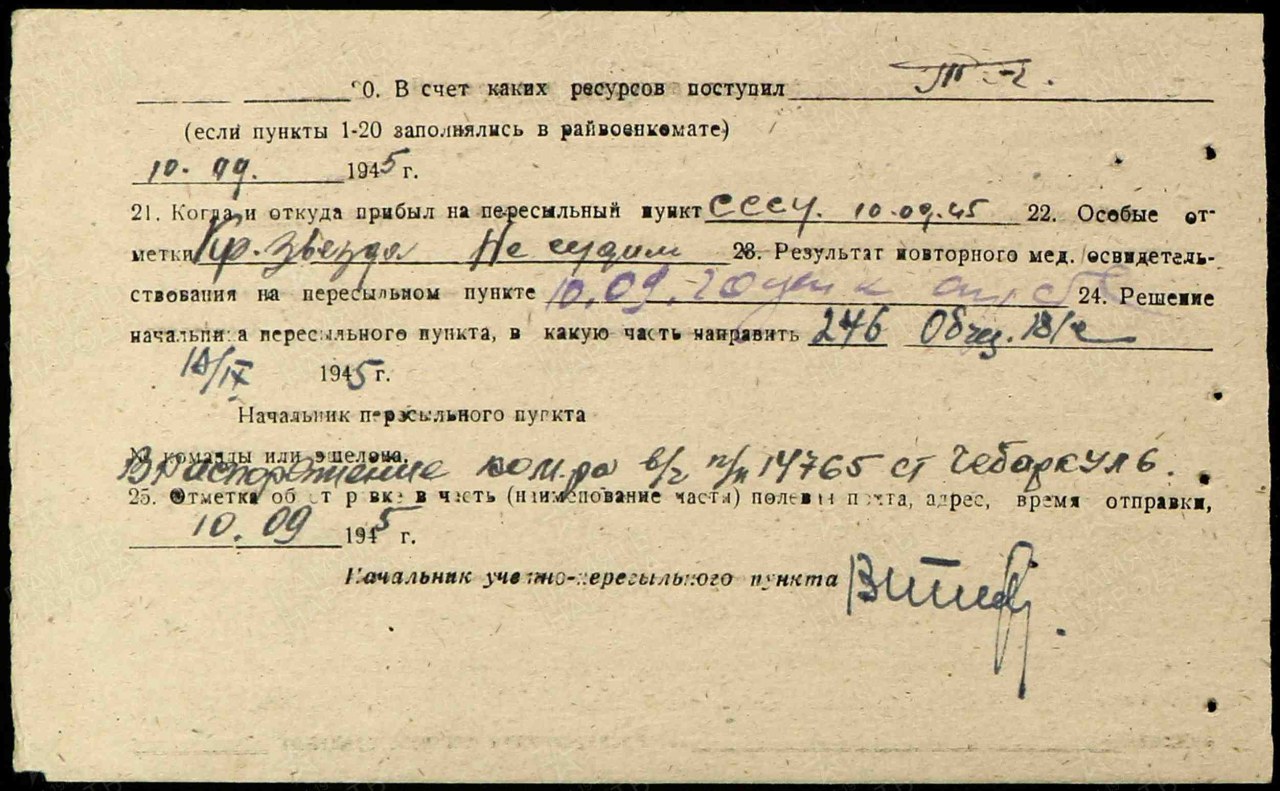 20. В счет каких ресурсов поступил
(если пункты 1-20 заполнялись в райвоенкомате)
10. 09. 1945 г.
21. Когда и откуда прибыл на пересыльный пункт 10.09.45 22. Особые от-
метки Кр. Звезда Не судим 23. Результат повторного мед. освидетель-
ствования на пересыльном пункте 10.09. Годен к 24. Решение
начальника пересыльного пункта, в какую часть направить 246
10/IX 1945 г.
Начальник пересыльного пункта
№ команды или эшелона.
В распоряжение ком-ра в/ч п/п 14765 ст Чебаркуль.
25. Отметка об отправке в часть (наименование части) полевая почта, адрес, время отправки,
10. 09 1945 г.
Начальник учетно-пересыльного пункта